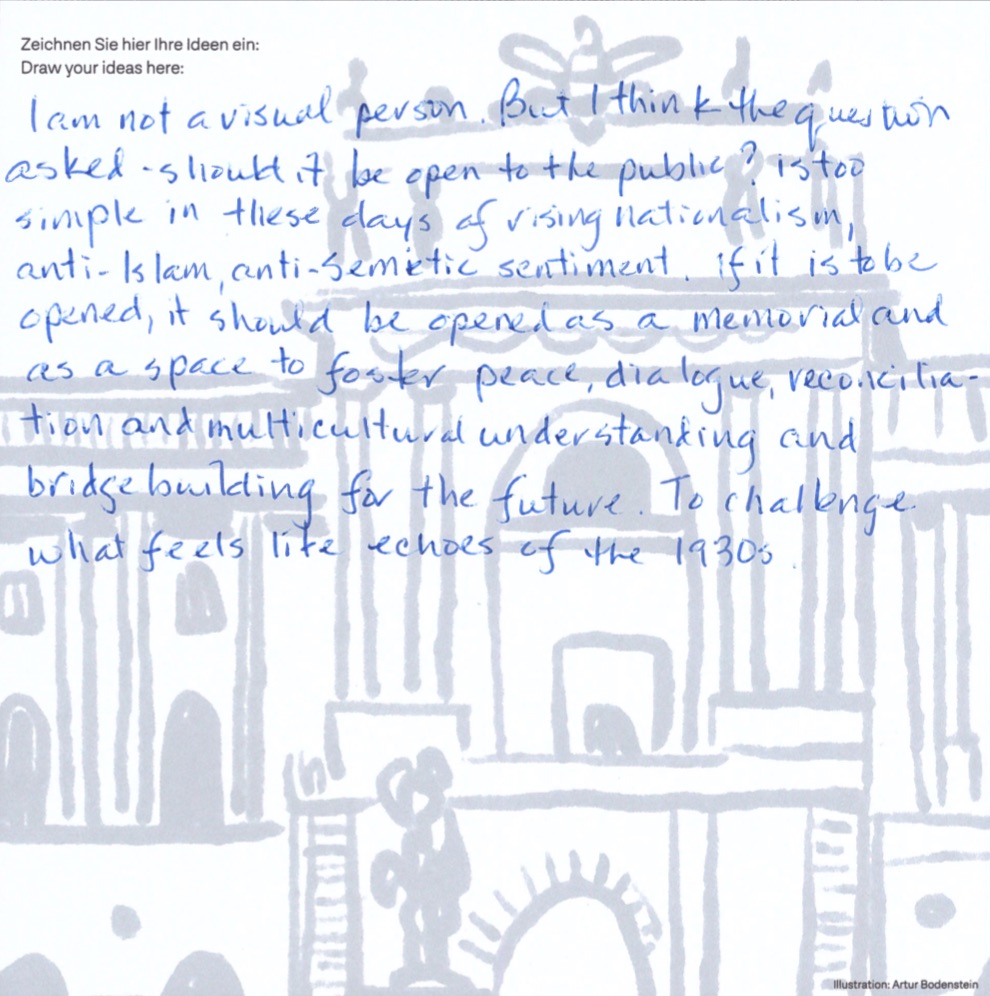 Zeichnen Sie hier Ihre Ideen ein:
Draw your ideas here:
I am not a visual person. But I think the question
asked - should it be open to the public? is too
simple in these days of rising nationalism,
anti-Islam, anti-Semetic sentiment. If it is to be
opened, it should be opened as a memorial and
as a space to foster peace, dialogue, reconcilia-
tion and multicultural understanding and
bridgebuilding for the future. To challenge
what feels like echoes of the 1930s.
Illustration: Artur Bodenstein